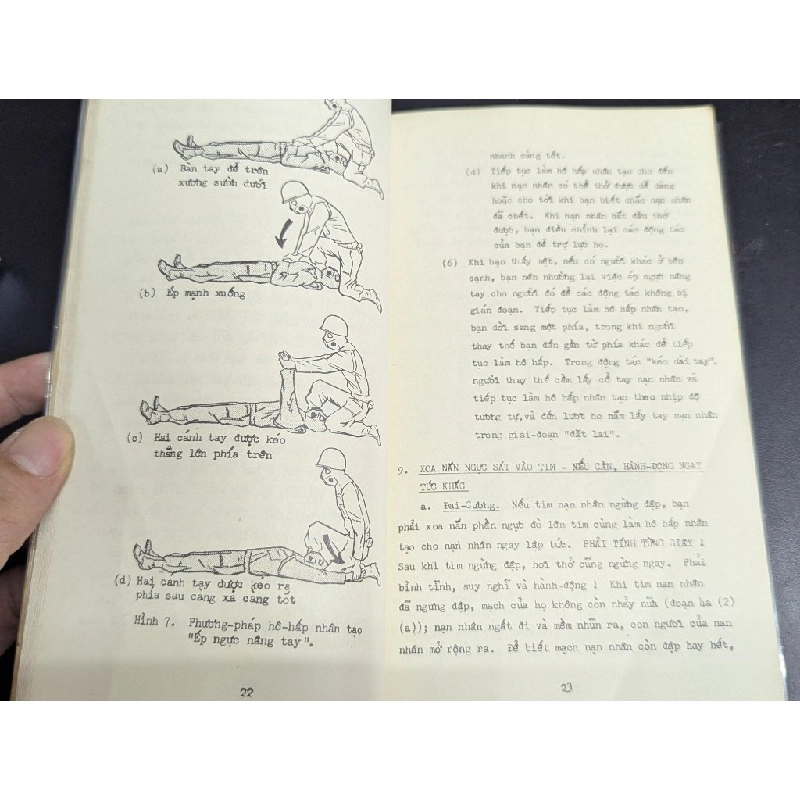 (a) Bàn tay để trên
xương sườn dưới
(b) Ép mạnh xuống
(c) Hai cánh tay được kéo
thẳng lên phía trên
(d) Hai cánh tay được kéo ra
phía sau càng xa càng tốt
Hình 7. Phương-pháp hô-hấp nhân tạo
"Ép ngực nâng tay".
22
nhanh càng tốt.
(d) Tiếp tục làm hô hấp nhân tạo cho đến
khi nạn nhân có thể thở được dễ dàng
hoặc cho tới khi bạn biết chắc nạn nhân
đã chết. Khi nạn nhân bắt đầu thở
được, bạn điều chỉnh lại các động tác
của bạn để trợ lực họ.
(6) Khi bạn thấy mệt, nếu có người khác ở bên
cạnh, bạn nên nhường lại việc ép ngực nâng
tay cho người đó để các động tác không bị
gián đoạn. Tiếp tục làm hô hấp nhân tạo,
bạn dời sang một phía, trong khi người
thay thế bạn đến gần từ phía khác để tiếp
tục làm hô hấp. Trong động tác "kéo dài tay",
người thay thế cầm lấy cổ tay nạn nhân và
tiếp tục làm hô hấp nhân tạo theo nhịp độ
tương tự, và đến lượt họ nắm lấy tay nạn nhân
trong giai-đoạn "đặt lại".
9. XOA NẮN NGỰC SÁT VÀO TIM - NẾU CẦN, HÀNH-ĐỘNG NGAY
TỨC KHẮC
a. Đại-Cương. Nếu tim nạn nhân ngừng đập, bạn
phải xoa nắn phần ngực đè lên tim cùng làm hô hấp nhân
tạo cho nạn nhân ngay lập tức. PHẢI TÍNH TỪNG GIÂY !
Sau khi tim ngừng đập, hơi thở cũng ngừng ngay. Phải
bình tĩnh, suy nghĩ và hành-động ! Khi tim nạn nhân
đã ngưng đập, mạch của họ không còn nhảy nữa (đoạn 4a (2)
(a)); nạn nhân ngất đi và mềm nhũn ra, con ngươi của nạn
nhân mở rộng ra. Để biết mạch nạn nhân còn đập hay hết,
23